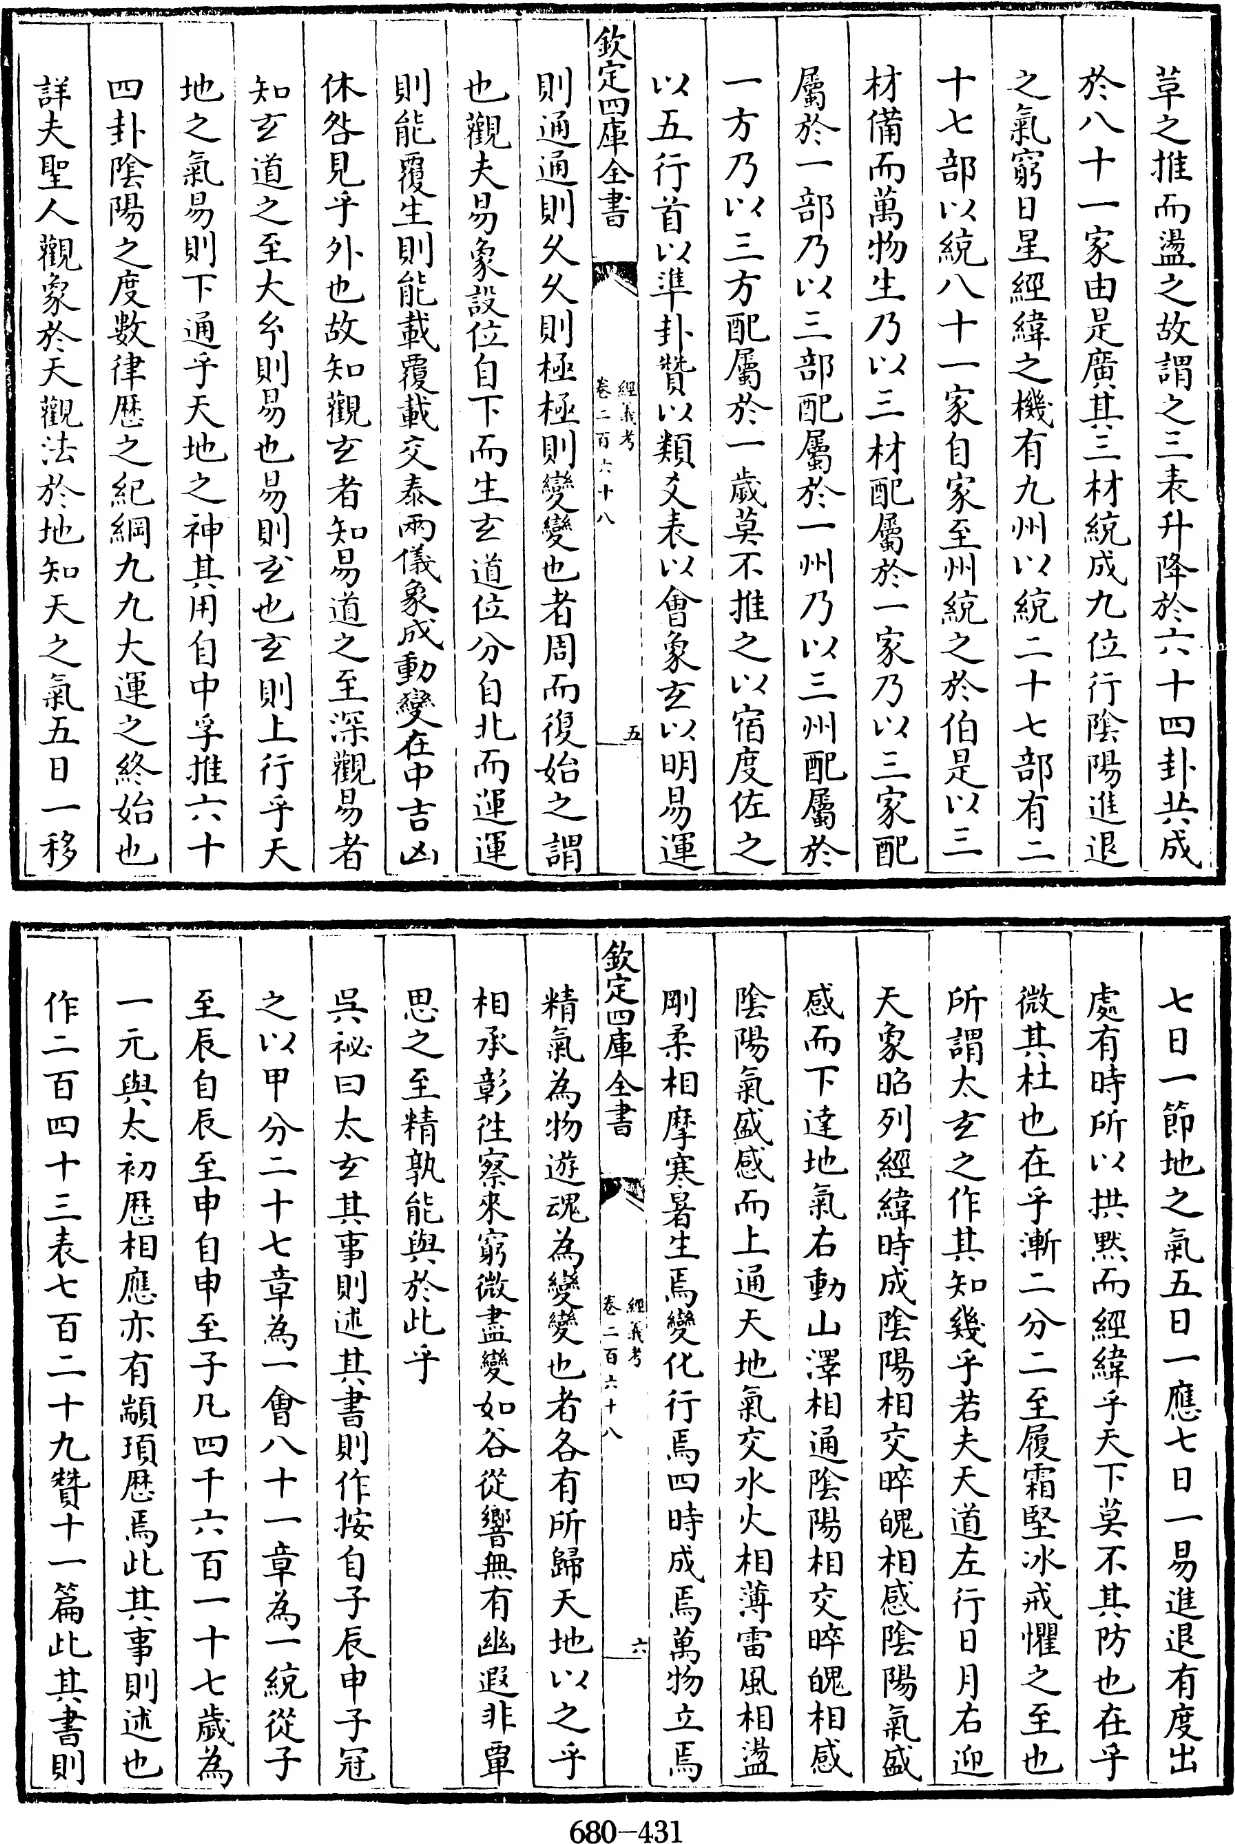 草之推而盪之故謂之三表升降於六十四卦共成
於八十一家由是廣其三材統成九位行陰陽進退
之氣窮日星經緯之機有九州以統二十七部有二
十七部以統八十一家自家至州統之於伯是以三
材備而萬物生乃以三材配屬於一家乃以三家配
屬於一部乃以三部配屬於一州乃以三州配屬於
一方乃以三方配屬於一歲莫不推之以宿度佐之
以五行首以準卦贊以類爻表以會象玄以明易運
欽定四庫全書
經義考
卷二百六十八
五
則通通則久久則極極則變變也者周而復始之謂
也觀夫易象設位自下而生玄道位分自北而運運
則能覆生則能載覆載交泰兩儀象成動變在中吉凶
休咎見乎外也故知觀玄者知易道之至深觀易者
知玄道之至大兮則易也易則玄也玄則上行乎天
地之氣易則下通乎天地之神其用自中孚推六十
四卦陰陽之度數律歷之紀綱九九大運之終始也
詳夫聖人觀象於天觀法於地知天之氣五日一移
七日一節地之氣五日一應七日一易進退有度出
處有時所以拱默而經緯乎天下莫不其防也在乎
微其杜也在乎漸二分二至履霜堅冰戒懼之至也
所謂太玄之作其知幾乎若夫天道左行日月右迎
天象昭列經緯時成陰陽相交晬魄相感陰陽氣盛
感而下達地氣右動山澤相通陰陽相交晬魄相感
陰陽氣盛感而上通天地氣交水火相薄雷風相盪
剛柔相摩寒暑生焉變化行焉四時成焉萬物立焉
欽定四庫全書
經義考
卷二百六十八
六
精氣為物遊魂為變變也者各有所歸天地以之乎
相承彰往察來窮微盡變如谷從響無有幽遐非覃
思之至精孰能與於此乎
吳祕曰太玄其事則述其書則作按自子辰申子冠
之以甲分二十七章為一會八十一章為一統從子
至辰自辰至申自申至子凡四千六百一十七歲為
一元與太初歷相應亦有顓頊歷焉此其事則述也
作二百四十三表七百二十九贊十一篇此其書則
680-431